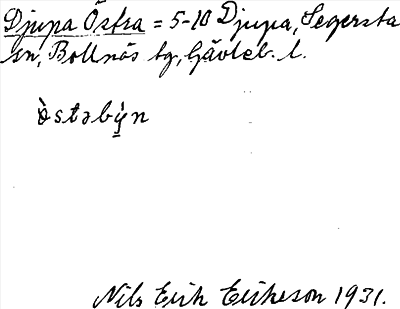 Djupa Östra = 5-10 Djupa, Segersta
sn, Bollnäs tg, Gävleb. l.
östəbỳn
Nils Erik Erikeson 1931.